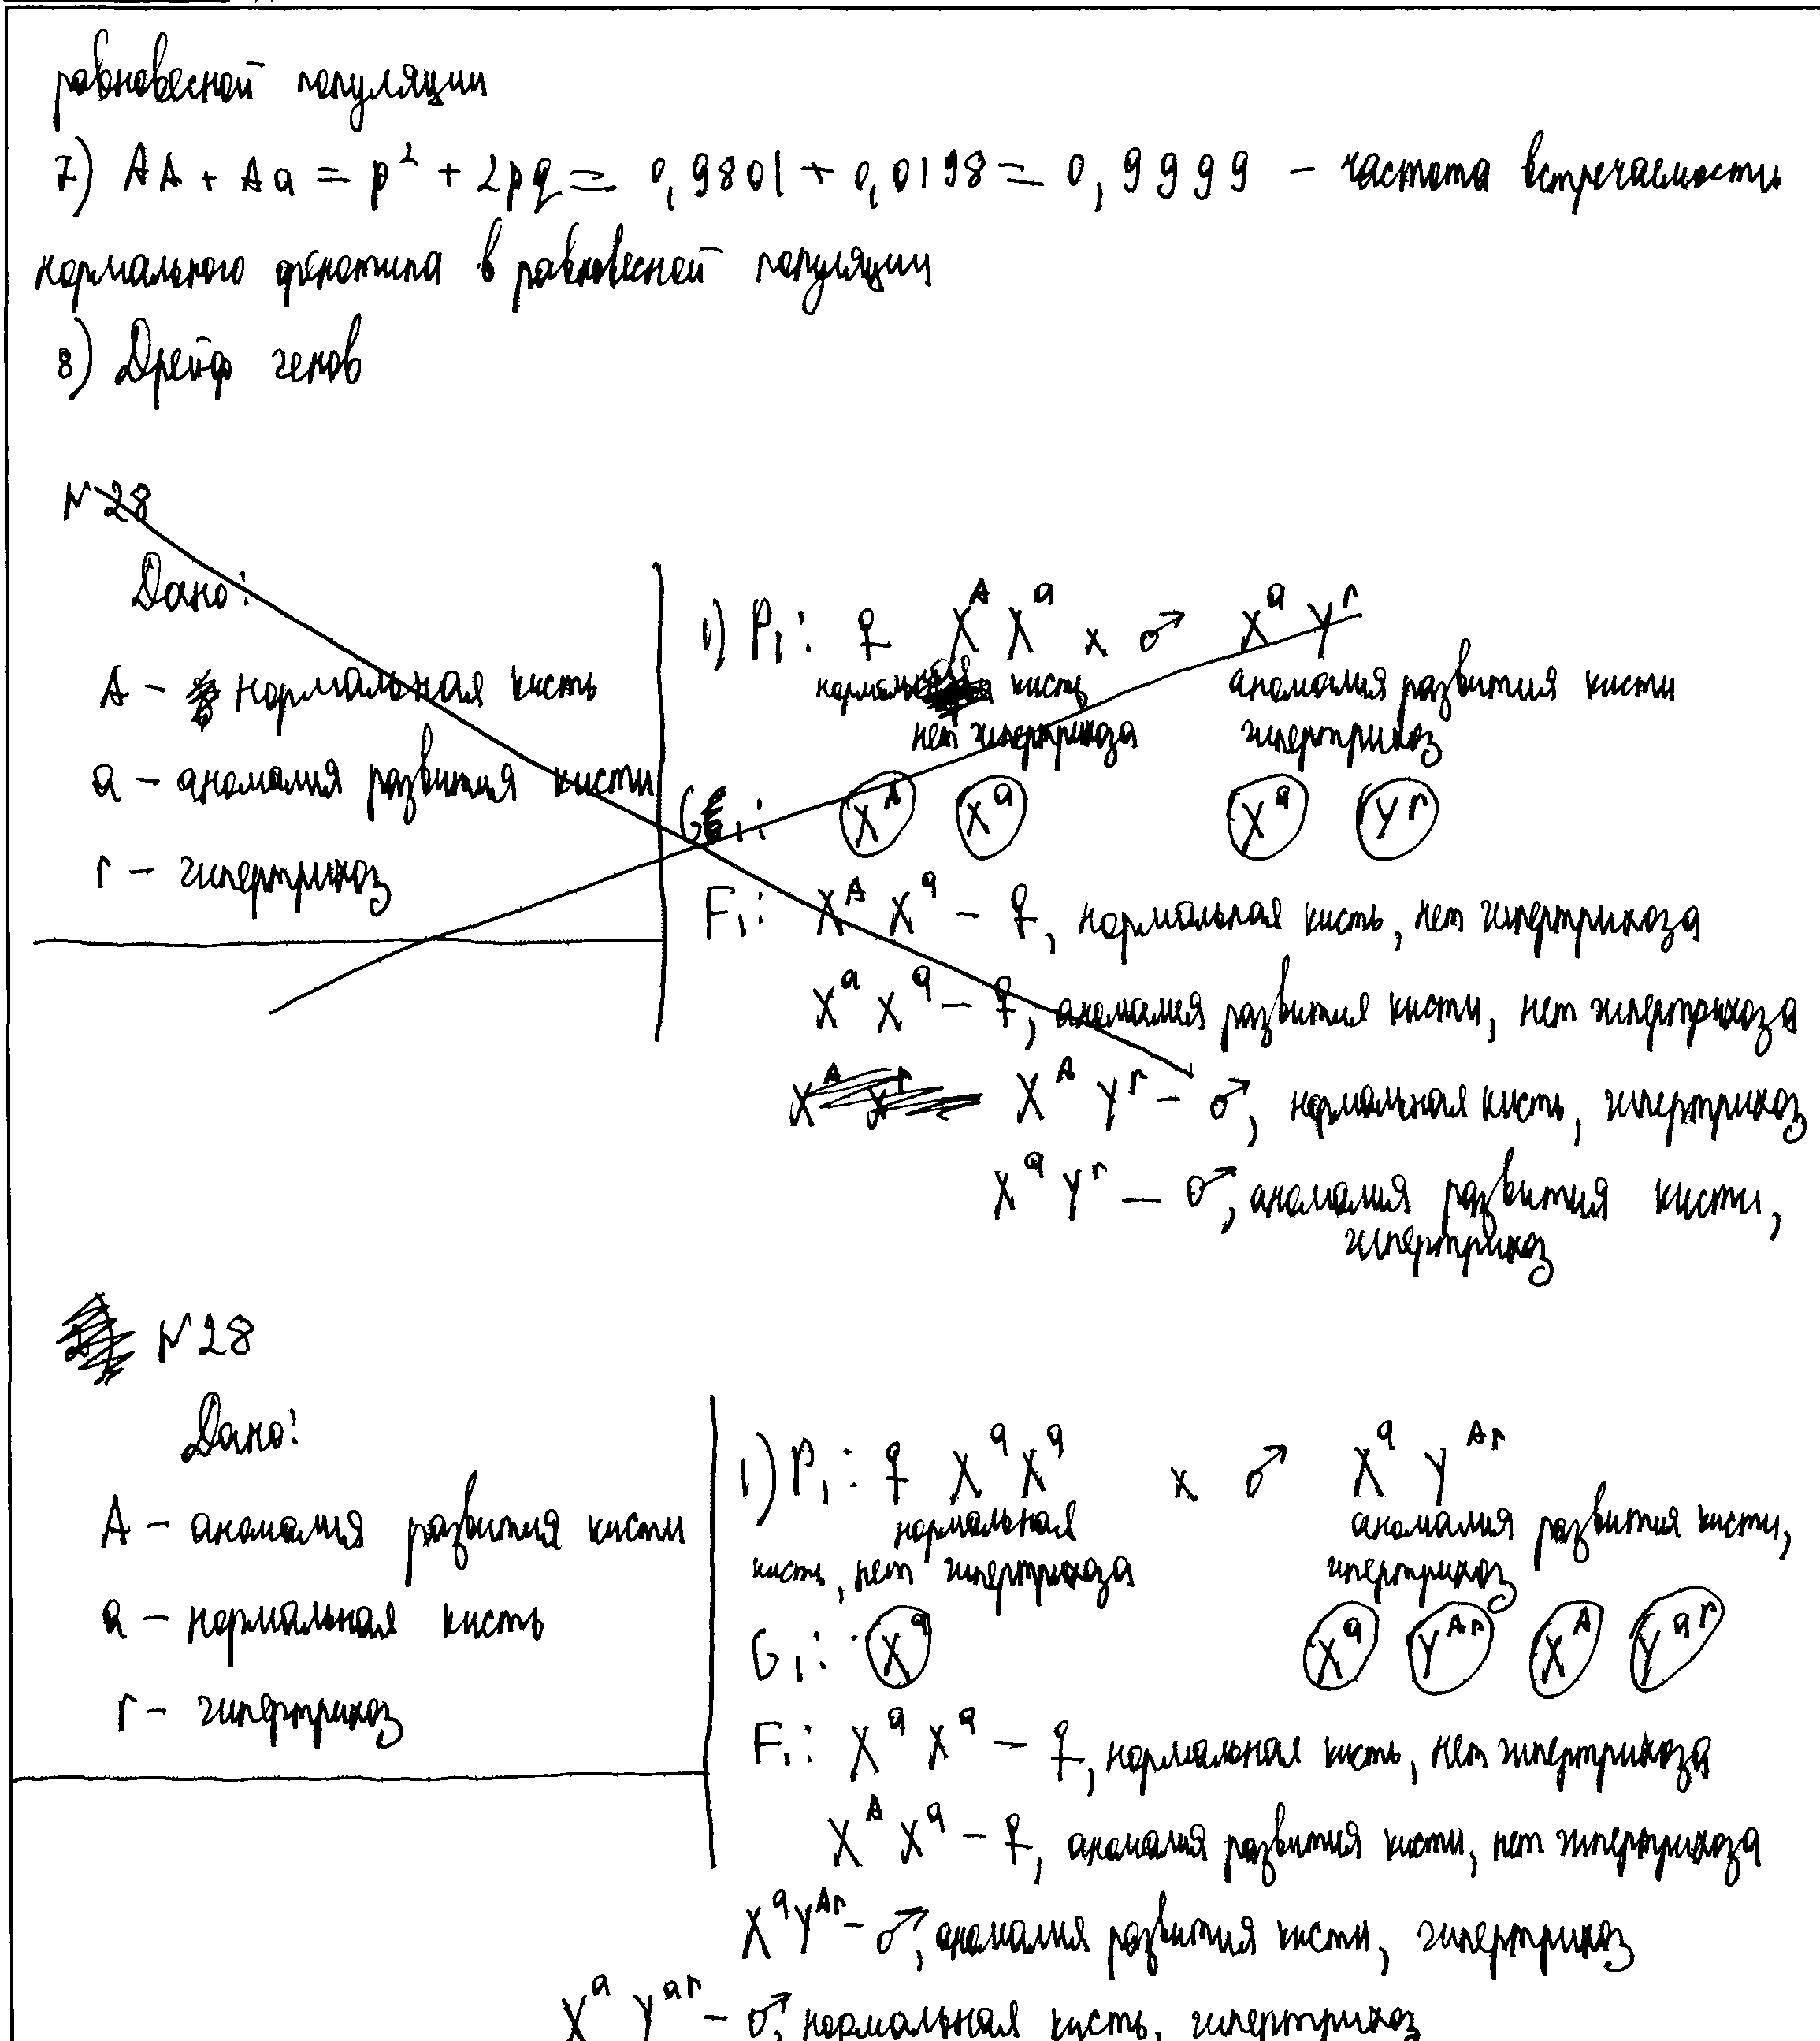 равновесной популяции
7) AA + Aa = p² + 2pq = 0,9801 + 0,0198 = 0,9999 – частота встречаемости
нормального фенотипа в равновесной популяции
8) Дрейф генов
N28
Дано:
A – нормальная кисть
a – аномалия развития кисти
r – гипертрихоз
1) P₁: ♀ XᴬXᵃ x ♂ XᵃYʳ
нормальная кисть аномалия развития кисти
нет гипертрихоза гипертрихоз
G₁: Xᴬ Xᵃ Xᵃ Yʳ
F₁: XᴬXᵃ – ♀, нормальная кисть, нет гипертрихоза
XᵃXᵃ – ♀, аномалия развития кисти, нет гипертрихоза
XᴬYʳ – ♂, нормальная кисть, гипертрихоз
XᵃYʳ – ♂, аномалия развития кисти,
гипертрихоз
N28
Дано:
A – аномалия развития кисти
a – нормальная кисть
r – гипертрихоз
1) P₁: ♀ XᵃXᵃ x ♂ XᵃYᴬʳ
нормальная аномалия развития кисти,
кисть, нет гипертрихоза гипертрихоз
G₁: Xᵃ Xᵃ Yᴬʳ Xᴬ Yᵃʳ
F₁: XᵃXᵃ – ♀, нормальная кисть, нет гипертрихоза
XᴬXᵃ – ♀, аномалия развития кисти, нет гипертрихоза
XᵃYᴬʳ – ♂, аномалия развития кисти, гипертрихоз
XᵃYᵃʳ – ♂, нормальная кисть, гипертрихоз